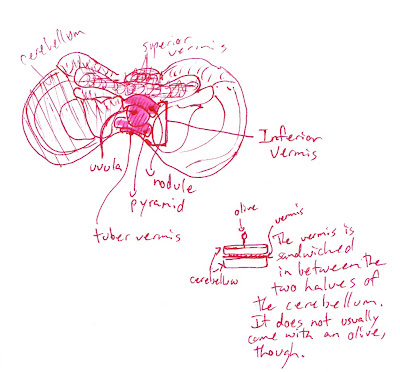 cerebellum
superior
vermis
Inferior
vermis
uvula
nodule
pyramid
tuber vermis
olive
vermis
cerebellum
The vermis is
sandwiched
in between the
two halves of
the cerebellum.
It does not usually
come with an olive,
though.